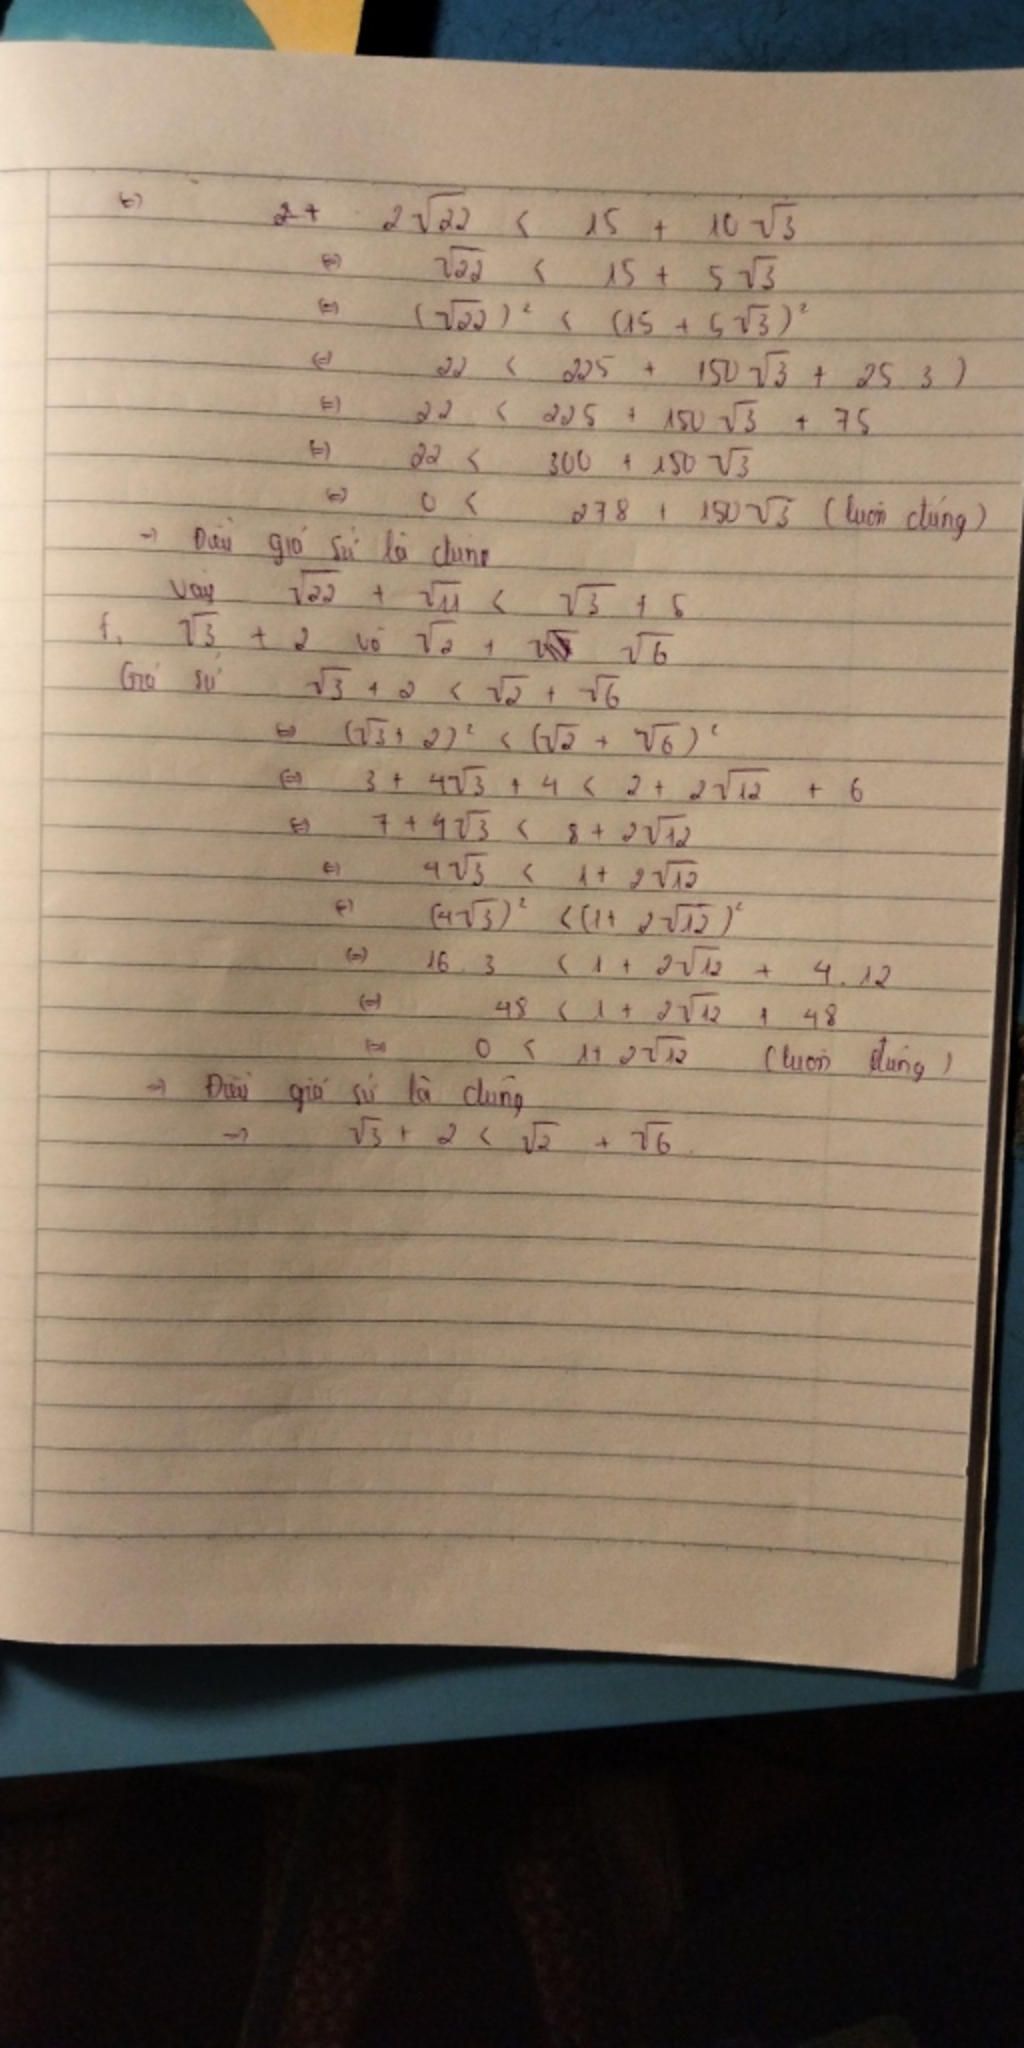 ⇔ 2 + 2√22 < 15 + 10√3
⇔ √22 < 15 + 5√3
⇔ (√22)² < (15 + 5√3)²
⇔ 22 < 225 + 150√3 + 25 3)
⇔ 22 < 225 + 150√3 + 75
⇔ 22 < 300 + 150√3
⇔ 0 < 278 + 150√3 (luôn đúng)
→ Điều giả sử là đúng
Vậy √22 + √11 < √3 + 5
f, √3 + 2 và √2 + √6
Giả sử √3 + 2 < √2 + √6
⇔ (√3 + 2)² < (√2 + √6)²
⇔ 3 + 4√3 + 4 < 2 + 2√12 + 6
⇔ 7 + 4√3 < 8 + 2√12
⇔ 4√3 < 1 + 2√12
⇔ (4√3)² < (1 + 2√12)²
⇔ 16 . 3 < 1 + 2√12 + 4 . 12
⇔ 48 < 1 + 2√12 + 48
⇔ 0 < 1 + 2√12 (luôn đúng)
→ Điều giả sử là đúng
→ √3 + 2 < √2 + √6.